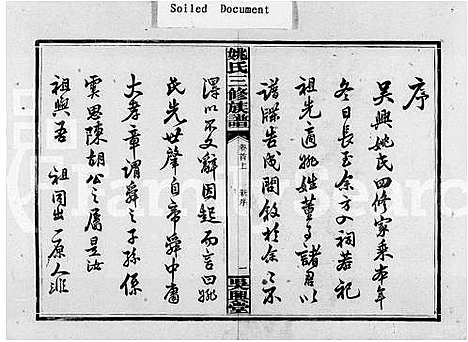 Soiled Document
序
吴興姚氏四修家乘本年
冬日長至余方入祠若祀
祖先適姚姓董事諸君以
譜牒告成開敘於余余不
得以不文辭因起而言曰姚
氏先世肇自帝舜中庸
大孝章謂舜之子孫係
虞思陳胡公之屬是汝
祖與吾 祖同出一原人雖
姚氏三修族譜
卷首上 新序 一
吳興堂